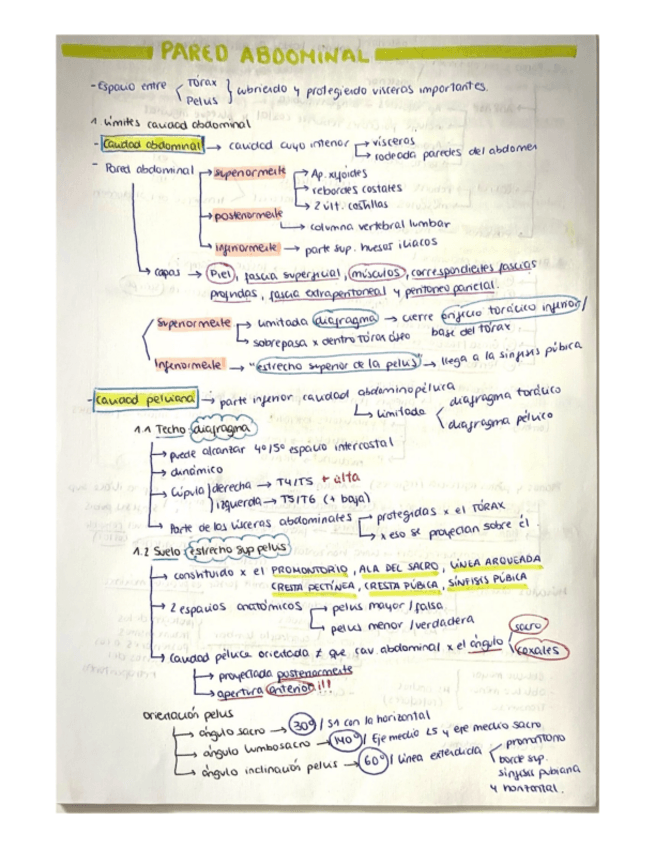 PARED ABDOMINAL
- Espacio entre Tórax Pelvis } cubriendo y protegiendo vísceras importantes.
1 Límites cavidad abdominal
- Cavidad abdominal → cavidad cuyo interior → vísceras
→ rodeada paredes del abdomen
- Pared abdominal → superiormente → Ap. xifoides
→ rebordes costales
→ 2 últ. costillas
→ posteriormente
→ columna vertebral lumbar
→ inferiormente → parte sup. huesos iliacos
→ capas → Piel, fascia superficial, músculos, correspondientes fascias
profundas, fascia extraperitoneal y peritoneo parietal.
Superiormente → limitada diafragma → cierre orificio torácico inferior /
base del tórax
→ sobrepasa x dentro tórax óseo
Inferiormente → "estrecho superior de la pelvis" → llega a la sínfisis púbica
- Cavidad pelviana → parte inferior cavidad abdominopélvica
→ limitada diafragma torácico
diafragma pélvico
1.1 Techo: diafragma
→ puede alcanzar 4º/5º espacio intercostal
→ dinámico
→ Cúpula derecha → T4/T5 + alta
izquierda → T5/T6 (+ baja)
→ Parte de las vísceras abdominales → protegidas x el TÓRAX
→ x eso se proyectan sobre él.
1.2 Suelo: estrecho sup pelvis
→ constituido x el PROMONTORIO, ALA DEL SACRO, LÍNEA ARQUEADA
CRESTA PECTÍNEA, CRESTA PÚBICA, SÍNFISIS PÚBICA
→ 2 espacios anatómicos → pelvis mayor / falsa
→ pelvis menor / verdadera
→ Cavidad pélvica orientada ≠ que cav abdominal x el ángulo sacro
coxales
→ proyectada posteriormente
→ apertura anterior!!!
orientación pelvis
→ ángulo sacro → 30º / S1 con la horizontal
→ ángulo lumbosacro → 140º / Eje medio L5 y eje medio sacro
→ ángulo inclinación pelvis → 60º / Línea extendida promontorio
borde sup.
sínfisis pubiana
y horizontal.